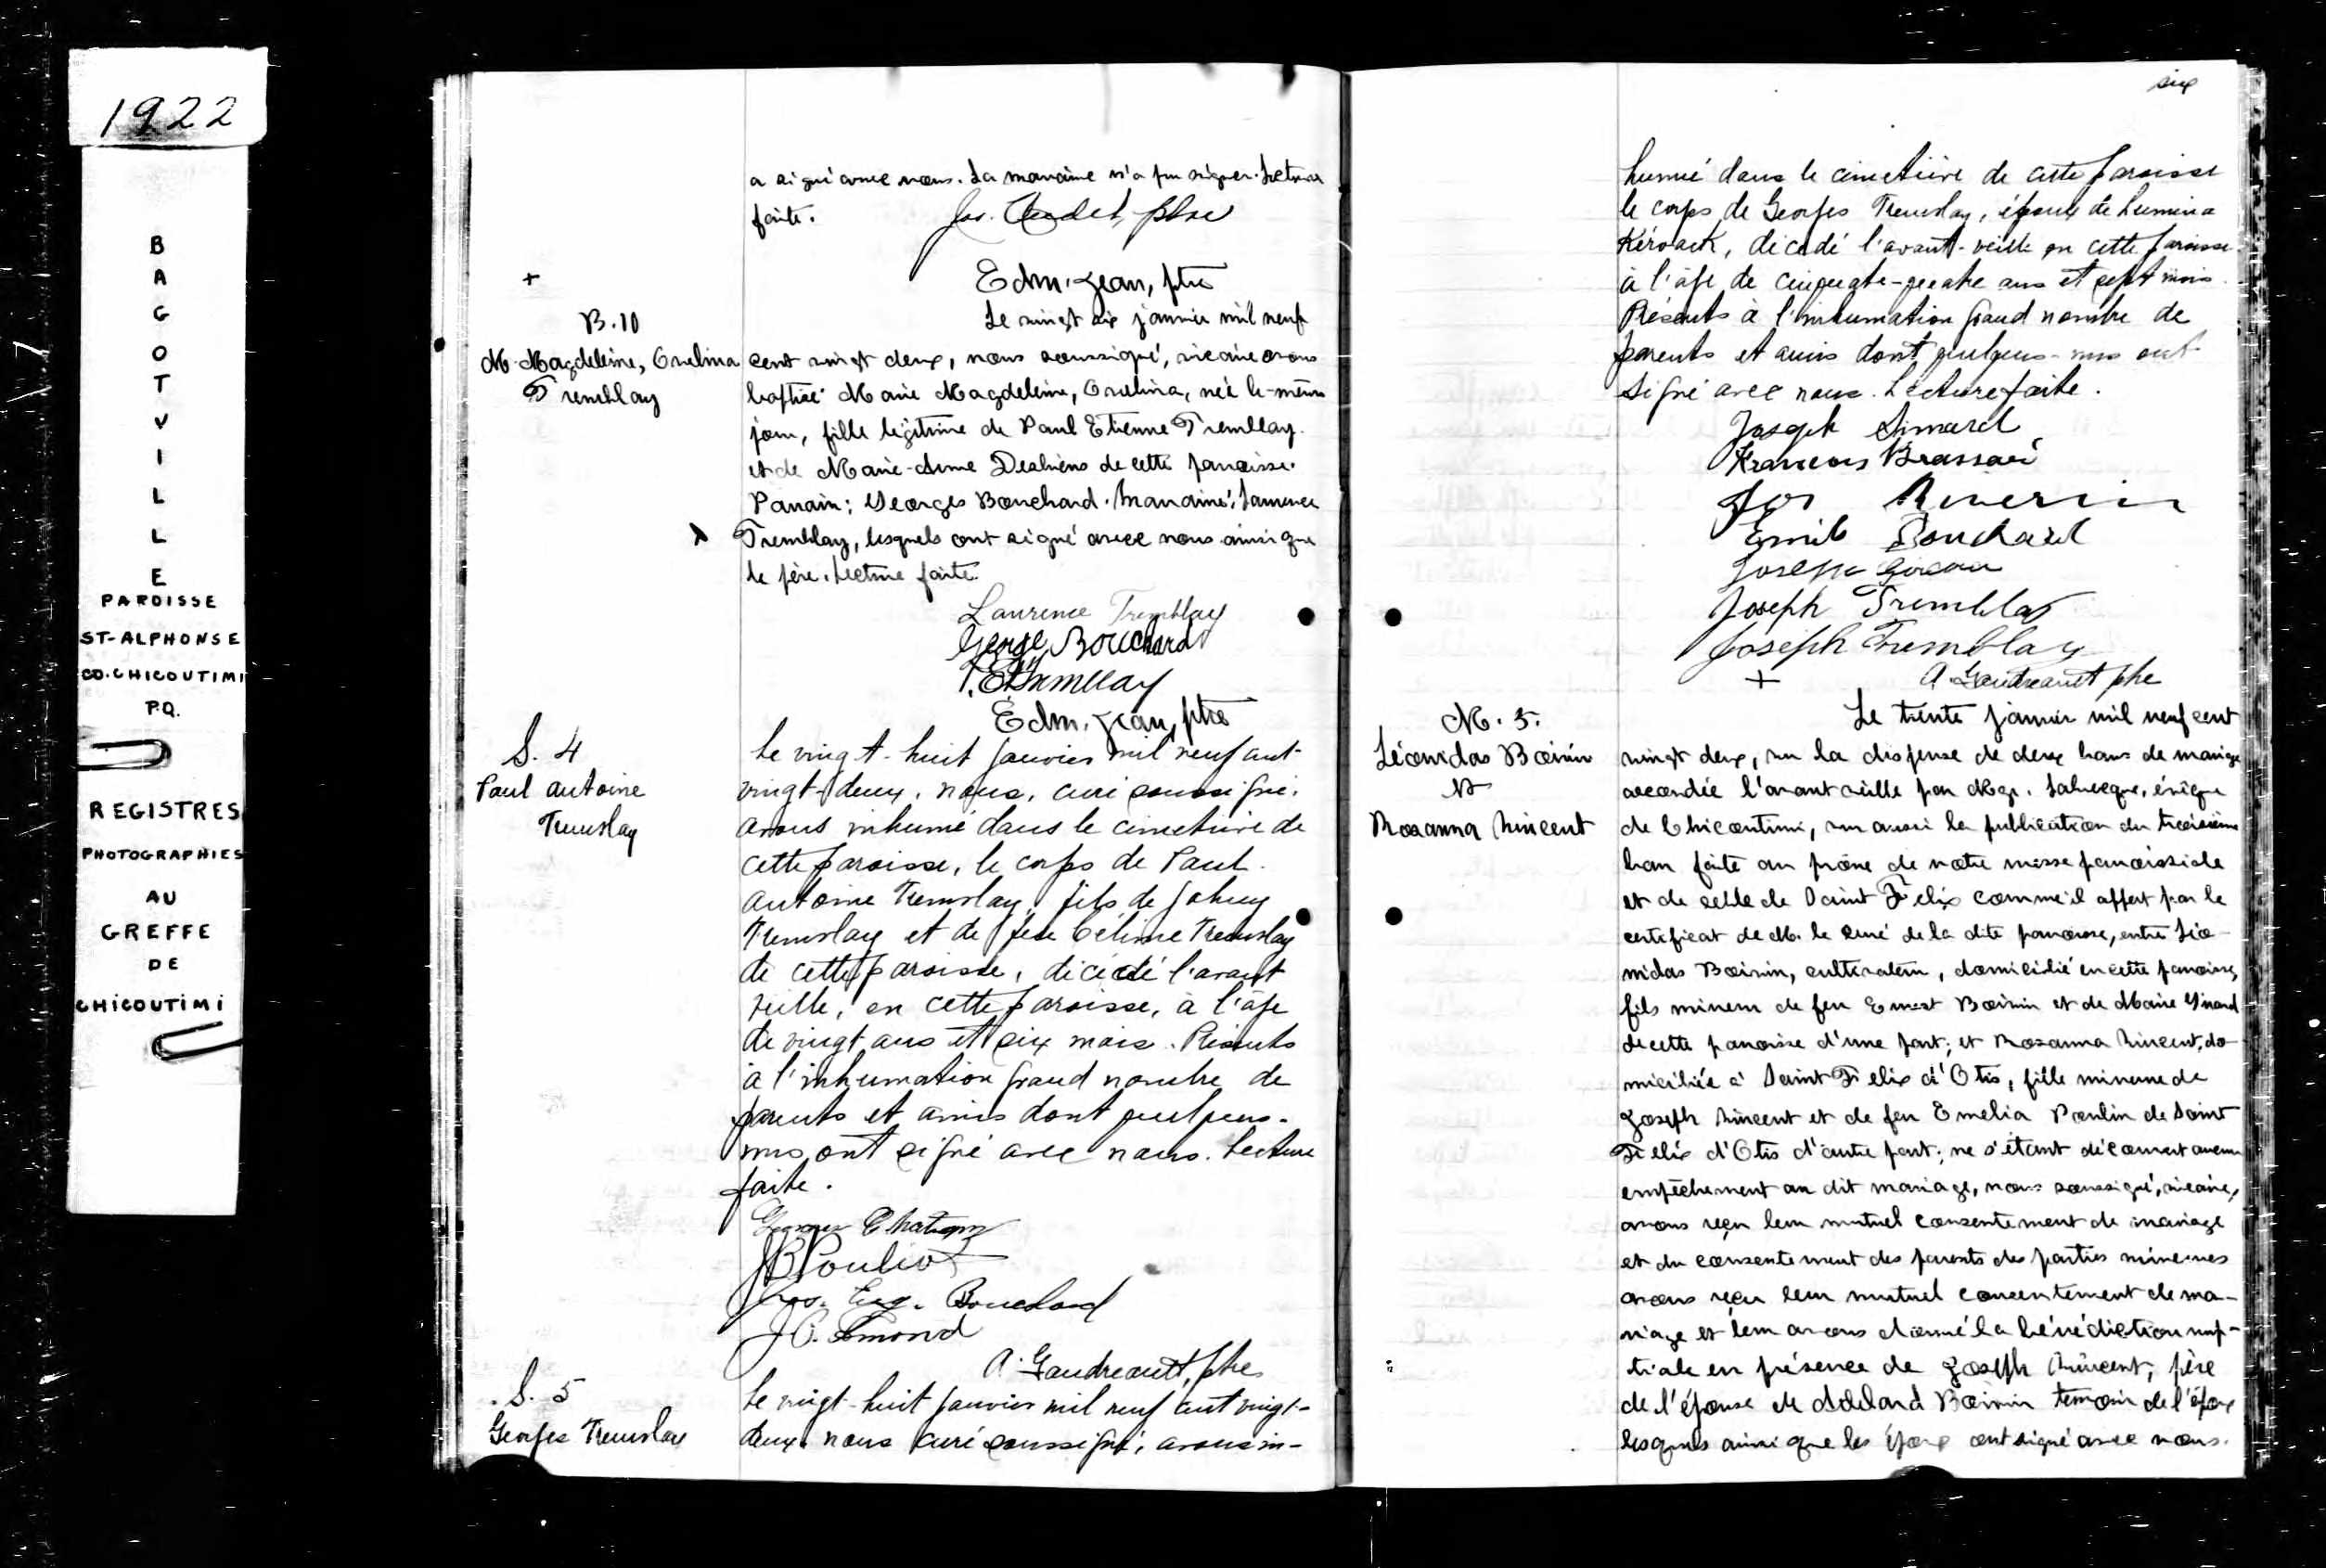 1922
B
A
G
O
T
V
I
L
L
E
PAROISSE
ST-ALPHONSE
CO. CHICOUTIMI
P.Q.
REGISTRES
PHOTOGRAPHIES
AU
GREFFE
DE
CHICOUTIMI
a signé avec nous. La marraine n'a pu signer. Lecture
faite.
Jos. Audet, ptre
+
Edm. Jean, ptre
B. 10
M. Magdeleine, Ovelina
Tremblay
Le vingt six janvier mil neuf
cent vingt deux, nous soussigné, vicaire avons
baptisé Marie Magdeleine, Ovelina, née le même
jour, fille légitime de Paul Etienne Tremblay
et de Marie-Anne Desbiens de cette paroisse.
Parrain: Georges Bouchard. Marraine: Laurence
Tremblay, lesquels ont signé avec nous ainsi que
le père. Lecture faite.
Laurence Tremblay
George Bouchard
P. E. Tremblay
Edm. Jean, ptre
S. 4
Paul Antoine
Tremblay
Le vingt-huit janvier mil neuf cent
vingt-deux, nous, curé soussigné,
avons inhumé dans le cimetière de
cette paroisse, le corps de Paul
Antoine Tremblay, fils de Johnny
Tremblay et de feu Célime Tremblay
de cette paroisse, décédé l'avant
veille, en cette paroisse, à l'âge
de vingt ans et six mois. Présents
à l'inhumation grand nombre de
parents et amis dont quelques-
uns ont signé avec nous. Lecture
faite.
JB Pouliot
Jos. Eug. Bouchard
J. O. Simond
A. Gaudreault, ptre
S. 5
Georges Tremblay
Le vingt-huit janvier mil neuf cent vingt-
deux, nous curé soussigné, avons in-
six
humé dans le cimetière de cette paroisse
le corps de Georges Tremblay, époux de Lumina
Kéroack, décédé l'avant-veille en cette paroisse
à l'âge de cinquante-quatre ans et sept mois.
Présents à l'inhumation grand nombre de
parents et amis dont quelques-uns ont
signé avec nous. Lecture faite.
Joseph Simard
François Brassard
Jos Riverin
Emile Bouchard
Joseph
Joseph Tremblay
Joseph Tremblay
+
A Gaudreault ptre
M. 5.
Léonidas Boivin
et
Rosanna Vincent
Le trente janvier mil neuf cent
vingt deux, vu la dispense de deux bans de mariage
accordée l'avant veille par Mgr. Labrecque, évêque
de Chicoutimi, vu aussi la publication du troisième
ban faite au prône de notre messe paroissiale
et de celle de Saint Felix comme il appert par le
certificat de M. le curé de la dite paroisse, entre Léo-
nidas Boivin, cultivateur, domicilié en cette paroisse,
fils mineur de feu Ernest Boivin et de Marie Girard
de cette paroisse d'une part; et Rosanna Vincent, do-
miciliée à Saint Felix d'Otis, fille mineure de
Joseph Vincent et de feu Emelia Poulin de Saint
Felix d'Otis d'autre part; ne s'étant découvert aucun
empêchement au dit mariage, nous soussigné, vicaire,
avons reçu leur mutuel consentement de mariage
et du consentement des parents des parties mineures
avons reçu leur mutuel consentement de ma-
riage et leur avons donné la bénédiction nup-
tiale en présence de Joseph Vincent, père
de l'épouse et Adelard Boivin témoin de l'époux
lesquels ainsi que les époux ont signé avec nous.